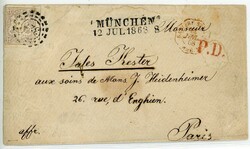 MÜNCHEN
12 JUL 1868
Monsieur
P.D.
Jules Kester
aux soins de Mons J. Heidenheimer
26. rue d'Enghien
affr.
Paris